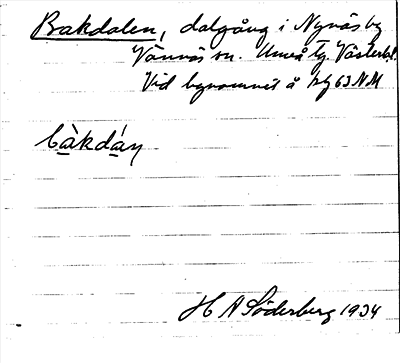 Bakdalen, dalgång i Nynäs by
Vännäs sn. Umeå tg. Västerb.l.
Vid bynamnet å bl 63 NM
bàkdán
H A Söderberg 1934